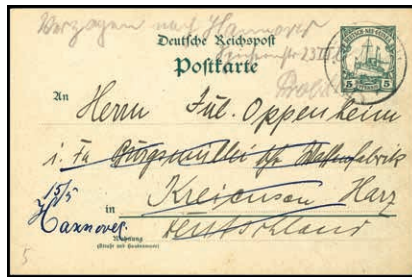 Verzogen nach Hannover
Deutsche Reichspost
Postkarte
DEUTSCH-NEU-GUINEA
5 5
An Herrn Jul. Oppenheim
i. Fa Waffenfabrik
15/5
in Kreiensen Harz
Hannover
Deutschland
Wohnung
(Straße und Hausnummer)
5